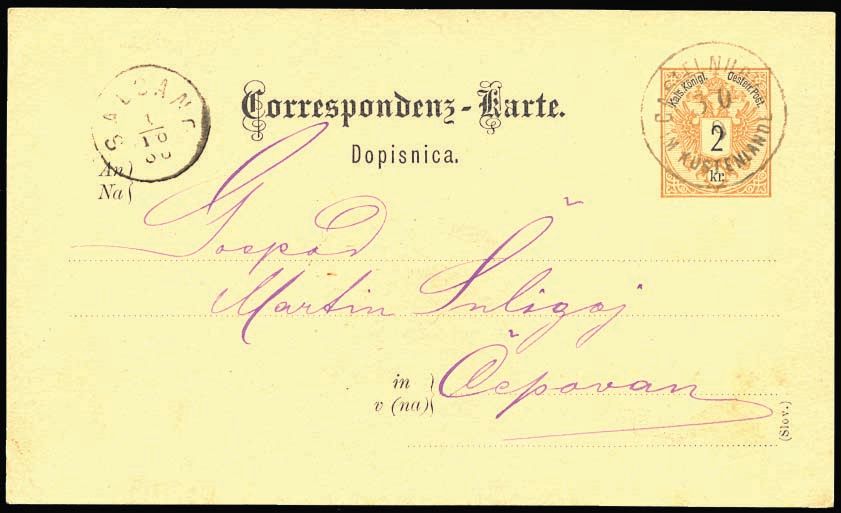 Correspondenz-Karte.
Dopisnica.
Kais. Königl. Oesterr. Post.
2
kr.
CASTELNUOVO
30
9
IM KÜSTENLANDE
SALCANO
1
10
An
Na
Gospod
Martin Šuligoj
in Čepovan
v (na)
(Slov.)